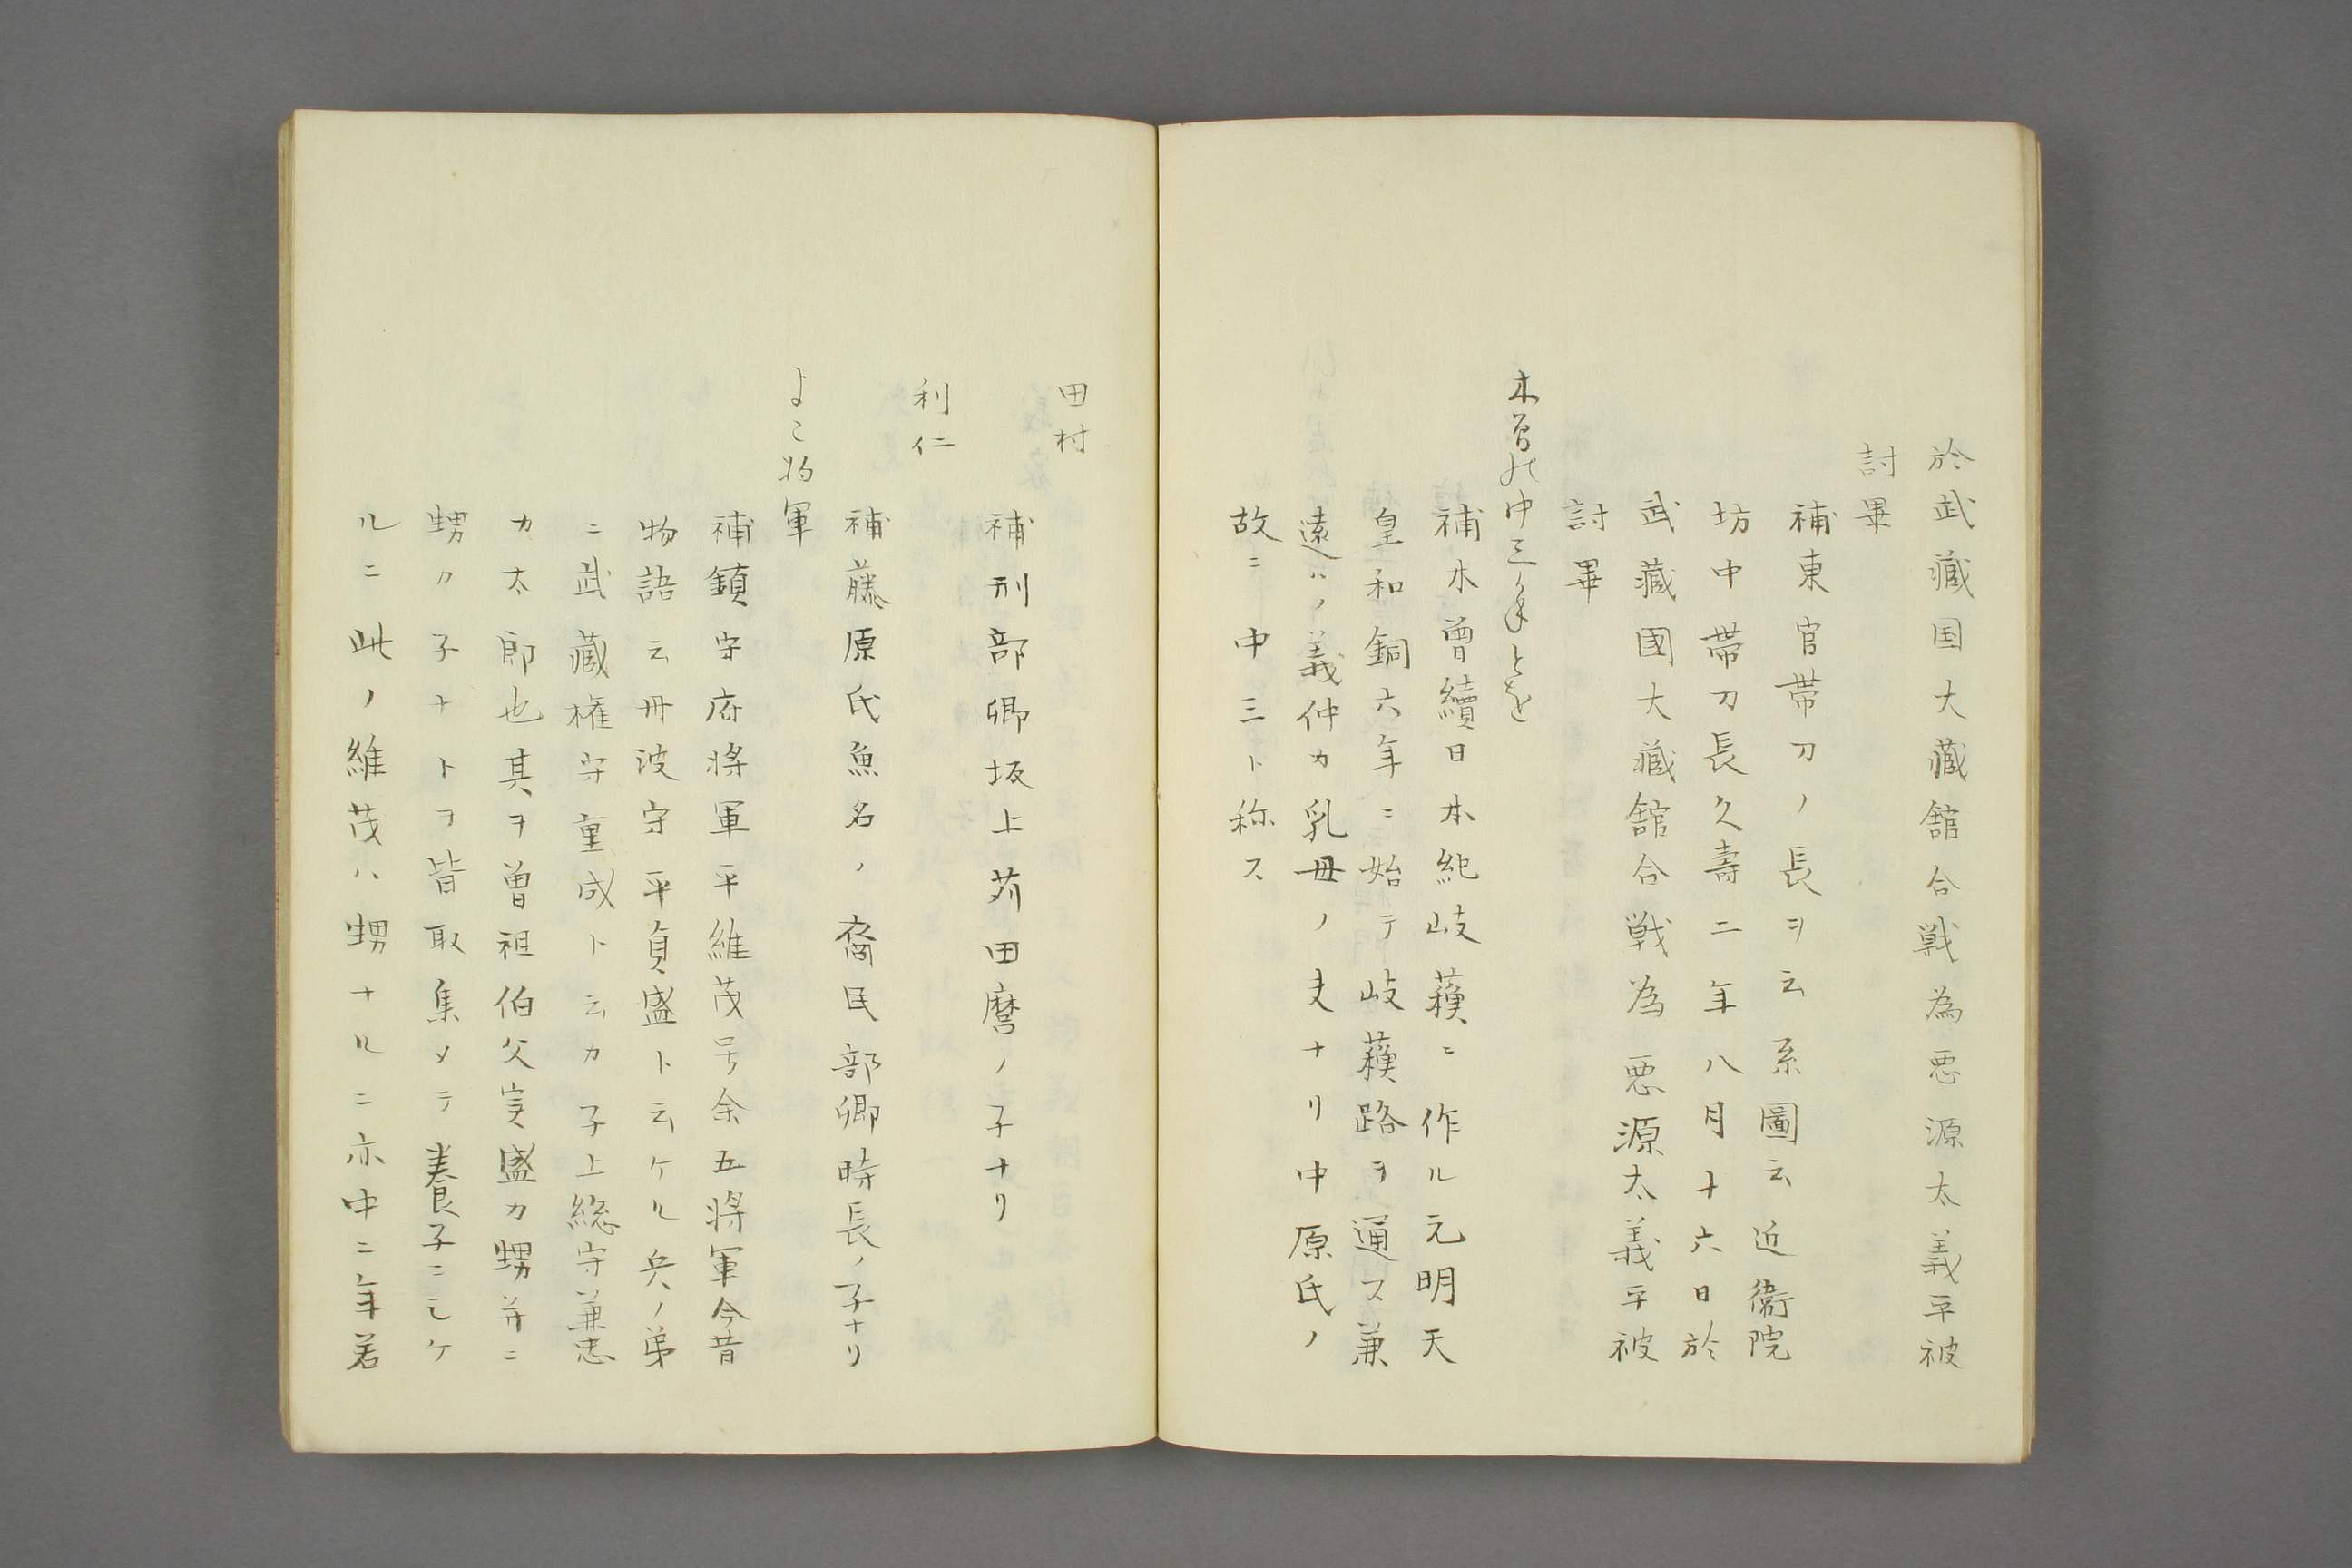 於武藏国大藏舘合戦為悪源太義平被
討畢
補東官帯刀ノ長ヲ云系圖云近衞院
坊中帯刀長久壽二年八月十六日於
武藏國大藏舘合戦為悪源太義平被
討畢
木曽の中三かねとを
補木曽續日本紀岐蘓ニ作ル元明天
皇和銅六年ニ始テ岐蘓路ヲ通ス兼
遠ハ義仲カ乳母ノ夫ナリ中原氏ノ
故ニ中三ト称ス
田村
補刑部卿坂上苅田麿ノ子ナリ
利仁
補藤原氏魚名ノ裔民部卿時長ノ子ナリ
よこ将軍
補鎮守府将軍平維茂号余五将軍今昔
物語云丹波守平貞盛ト云ケル兵ノ弟
ニ武藏権守重成ト云カ子上総守兼忠
カ太郎也其ヲ曽祖伯父実盛カ甥并ニ
甥カ子ナトヲ皆取集メテ養子ニシケ
ルニ此ノ維茂ハ甥ナルニ亦中ニ年若